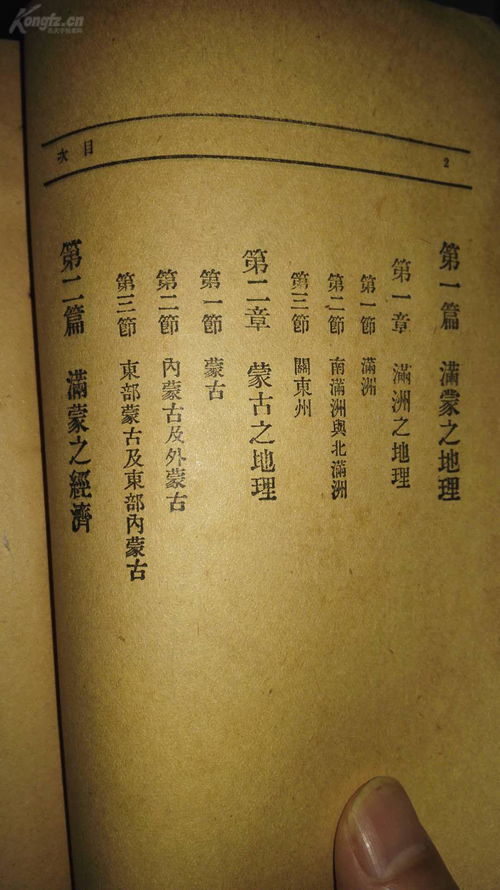 Kongfz.cn
2
目次
第一篇 滿蒙之地理
第一章 滿洲之地理
第一節 滿洲
第二節 南滿洲與北滿洲
第三節 關東州
第二章 蒙古之地理
第一節 蒙古
第二節 內蒙古及外蒙古
第三節 東部蒙古及東部內蒙古
第二篇 滿蒙之經濟